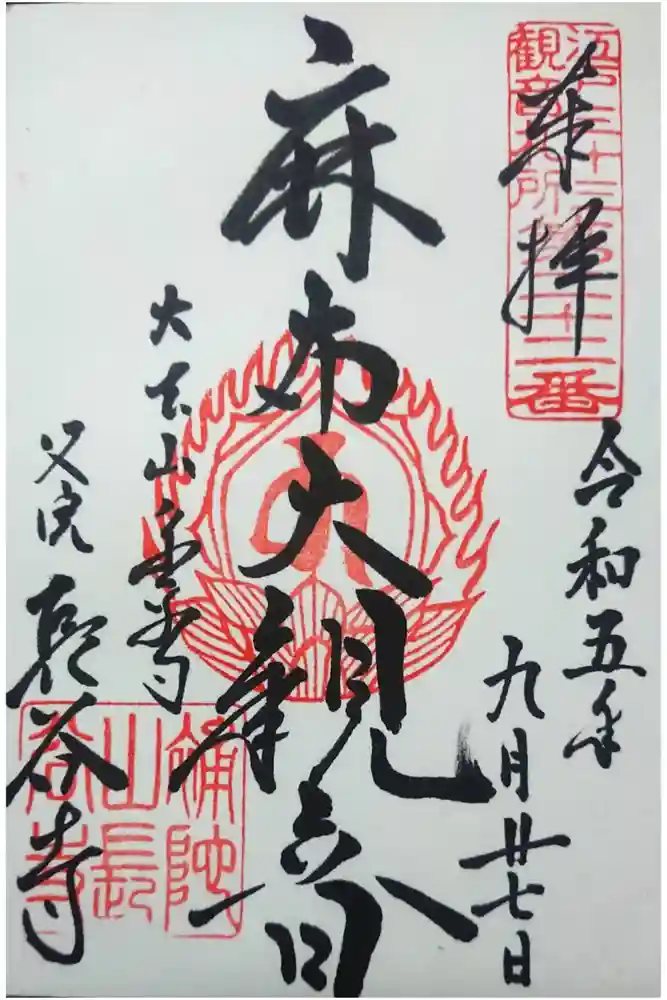 奉拝
江戸三十三
観音札所
第二十二番
令和五年
九月廿七日
麻布大観音
大本山永平寺
別院 長谷寺
補陀
山長
谷寺